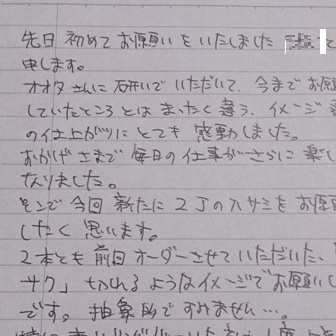 先日 初めて お願い を いたしました
申します。
オオタ さんに 研いで いただいて、今まで お願
していたところ とは まったく 違う、イメージ
の仕上がりに とても 感動しました。
おかげさまで 毎日の 仕事が さらに 楽し
なりました。
そこで 今回 新たに 2丁の ハサミを お願
したく 思います。
2本とも 前回 オーダーさせて いただいた、
サク」 切れる ような イメージで お願いし
です。 抽象的で すみません…。